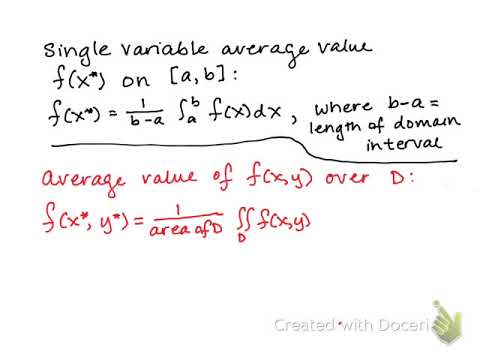 Single variable average value
f(x*) on [a, b]:
f(x*) = 1/(b-a) ∫_a^b f(x)dx, where b-a =
length of domain
interval
average value of f(x,y) over D:
f(x*, y*) = 1/(area of D) ∬_D f(x,y)
Created with Doceri